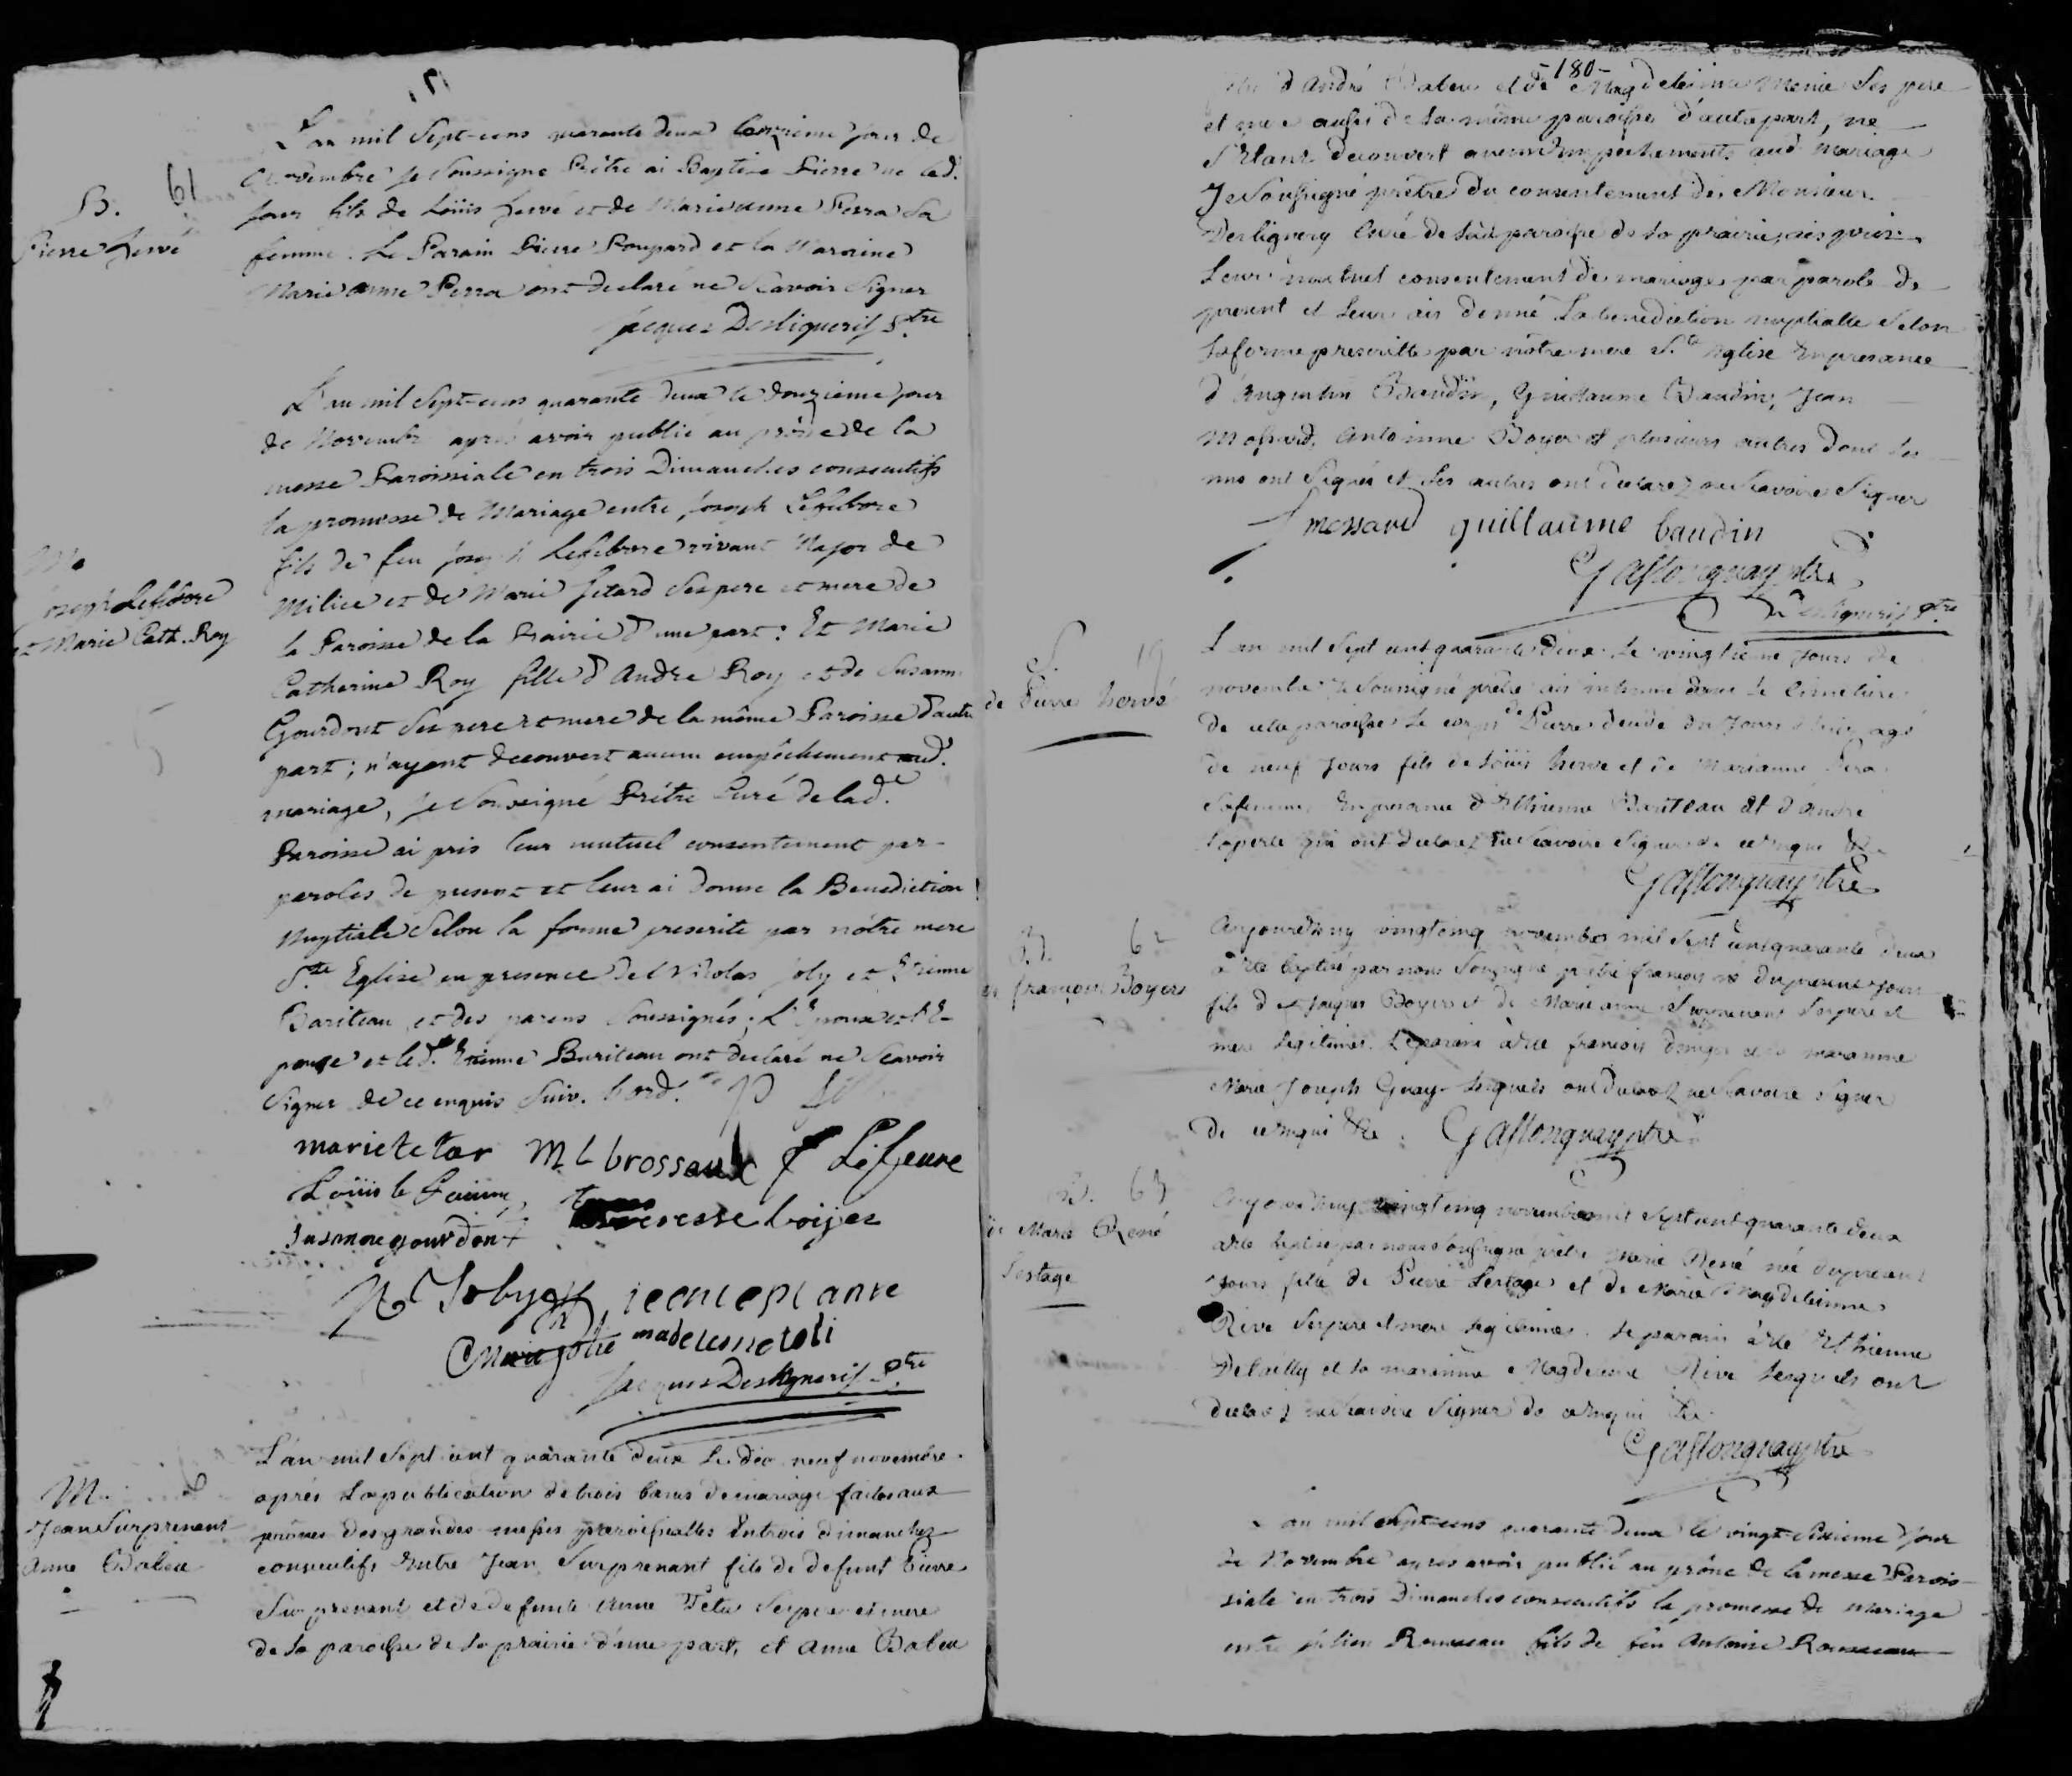 B. 61
Pierre hervé
L'an mil Sept-cens quarante deux le onzieme jour de
Novembre je Soussigné Prêtre ai Baptisé Pierre né led.
jour fils de Loüis hervé et de Marie anne Perra Sa
femme. Le Parain Pierre Poupard et la Maraine
Marie anne Perra ont declaré ne Scavoir Signer
Jacques Desligneris Ptre
M.
Joseph Lefebvre
et Marie Cath. Roy
L'an mil Sept-cens quarante deux le douzieme jour
de Novembr après avoir publié au prône de la
messe Paroissiale en trois Dimanches consecutifs
la promesse de Mariage entre Joseph Lefebvre
fils de feu Joseph Lefebvre vivant Major de
Milice et de Marie Tetard Ses pere et mere de
la Paroisse de la Prairie d'une part: Et Marie
Catherine Roy fille d'André Roy et de Susanne
Gourdont Ses pere et mere de la même Paroisse d'autre
part; n'ayant decouvert aucun empêchement aud.
mariage, je Soussigné Prêtre Curé de lad.e
Paroisse ai pris leur mutuel consentement par
paroles de present et leur ai donné la Benediction
Nuptiale Selon la forme prescrite par nôtre mere
S.te Eglise en presence de Nicolas Joly et Etienne
Bariteau et des parens Soussignés; L'Epoux et l'E-
pouse et led. Etienne Bariteau ont declaré ne Scavoir
Signer de ce enquis Suiv. l'ord.
marie tetar M L brossaux J Lefeuvre
Loüis le
Susanne gourdont teresse boijer
N Joly jean le plante
Marie jolie madelesne toli
Jacques Desligneris Ptre
M.
Jean Surprenant
Anne Babeu
L'an mil Sept cent quarante deux Le dix neuf novembre
après La publication de trois bans de mariage faites aux
prônes des grandes messes paroissialles En trois dimanches
consecutifs Entre Jean Surprenant fils de defunt Pierre
Surprenant et de defunte Anne Tétu Ses pere et mere
de La paroisse de La prairie d'une part, et Anne Babeu
-180-
fille d'André Babeu et de Magdeleinne Menie Ses pere
et mere aussi de La même paroisse d'autre part, ne
S'étant decouvert aucun Empechements aud mariage
Je Soussigné prêtre du consentement de Monsieur
Deslignery Curé de lad paroisse de La prairie ais pris
Leur mutuel consentement de mariage par parole de
present et Leur ais donné La benediction nuptialle Selon
La forme prescritte par nôtre mere S.te Eglise En presance
d'Augustin Baudin, Guillaume Baudin, Jean
Massard, Antoinne Boyer et plusieurs autres dont Les
uns ont Signés et Les autres ont declarez ne Scavoir Signer
J messard guillaume baudin
Gastonguay ptre
Desligneris Ptre
S. 19
de Pierre hervé
L'an mil Sept cent quarante deux Le vingtieme Jours de
novembre Je Soussigné prêtre ais inhumé dans Le Cimetiere
de cette paroisse Le corps de Pierre decedé du Jours d'hier agé
de neuf Jours fils de Loüis herve et de Marianne Pera
Sa femme En presance d'Ethienne Bariteau et d'André
Laperle qui ont declarez ne Scavoire Signer de ce Enquis &c
Gastonguay ptre
B. 62
de françois Boyer
Aujourdhuy vingt cinq novembre mil Sept cent quarante deux
a été baptisé par nous Soussigné prêtre françois né du present jour
fils de Jacques Boyer et de Marie anne Surprenant Ses pere et
mere Legitimes. Le parain a été françois et la maranine
Marie Joseph Guay Lesquels ont declarez ne Scavoire Signer
de ce Enquis &c. Gastonguay ptre
B. 63
de Marie René
Lestage
Aujourdhuy vingt cinq novembre mil Sept cent quarante deux
a été baptisé par nous Soussigné prêtre Marie René née du present
Jours fille de Pierre Lestage et de Marie Magdeleinne
Rive Ses pere et mere Legitimes. Le parain a été Ethienne
Delailly et La maranine Magdeleine Rive Lesquels ont
declarez ne Scavoire Signer de ce Enquis &c.
Gastonguay ptre
L'an mil Sept-cens quarante deux le vingt-Sixieme jour
de Novembre apres avoir publié au prône de la messe Parois-
siale en trois Dimanches consecutifs la promesse de Mariage
entre Julien Rousseau fils de feu Antoine Rousseau